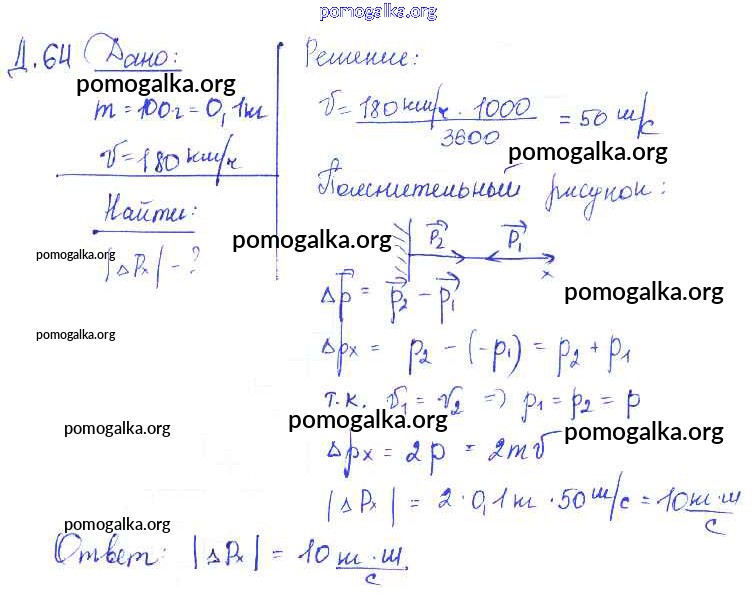 pomogalka.org
Д.64 Дано:
pomogalka.org
m = 100г = 0,1кг
v = 180 км/ч
Найти:
pomogalka.org
|Δpx| - ?
pomogalka.org
pomogalka.org
Решение:
v = 180 км/ч · 1000 / 3600 = 50 м/с
pomogalka.org
Пояснительный рисунок:
pomogalka.org
p₂ p₁
x
Δp = p₂ - p₁
pomogalka.org
Δpx = p₂ - (-p₁) = p₂ + p₁
т.к. v₁ = v₂ => p₁ = p₂ = p
pomogalka.org
pomogalka.org
Δpx = 2p = 2mv
|Δpx| = 2 · 0,1кг · 50 м/с = 10 кг·м/с
pomogalka.org
Ответ: |Δpx| = 10 кг·м/с.